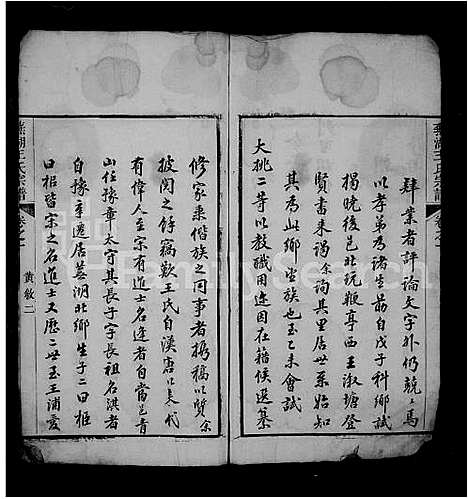 蕪湖王氏宗譜
卷之一
肄業者評論文字外仍競競焉
以孝弟為諸生勗自戊子科鄉試
揭曉後邑北玩鞭亭西王淑塘登
賢書來謁余詢其里居世系始知
其為山鄉望族也至乙未會試
大挑二等以教職用迨因在籍候選纂
修家乘偕族之同事者携稿以質余
披閱之餘竊歎王氏自漢唐以來代
有偉人立宗有道士名逢者自當邑青
山任豫章太守其長子字長祖名洪者
自豫章遷居蕪湖北鄉生子二曰柜
曰楷皆宋之名進士又歷二世至王浦
蕪湖王氏宗譜
卷之一
黄敘二
FamilySearch